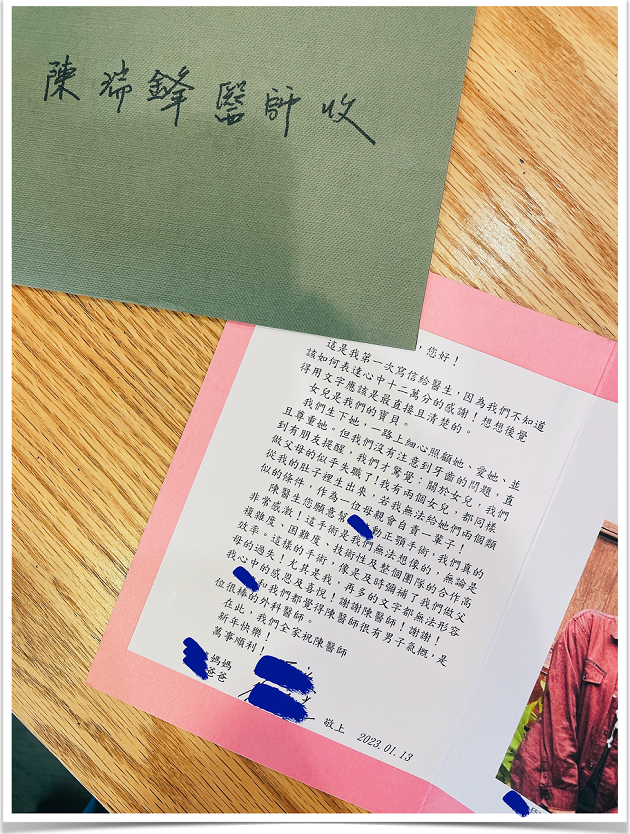 陳瑞鋒醫師收
，您好！
這是我第一次寫信給醫生，因為我們不知道
該如何表達心中十二萬分的感謝！想想後覺
得用文字應該是最直接且清楚的。
女兒是我們的寶貝。
我們生下她，一路上細心照顧她、愛她、並
且尊重她。但我們沒有注意到牙齒的問題，直
到有朋友提醒，我們才驚覺：關於女兒，我們
做父母的似乎失職了！我有兩個女兒，都同樣
從我的肚子裡生出來，若我無法給她們兩個類
似的條件，作為一位母親會自責一輩子！
陳醫生您願意幫動正顎手術，我們真的
非常感激！這手術是我們無法想像的，無論是
複雜度、困難度、技術性及整個團隊的合作高
效率。這樣的手術，像是及時彌補了我們做父
母的過失！尤其是我，再多的文字都無法形容
我心中的感恩及喜悅！謝謝陳醫師！謝謝！
和我們都覺得陳醫師很有男子氣概，是
位很棒的外科醫師。
在此，我們全家祝陳醫師
新年快樂！
萬事順利！
媽媽
爸爸
敬上 2023.01.13